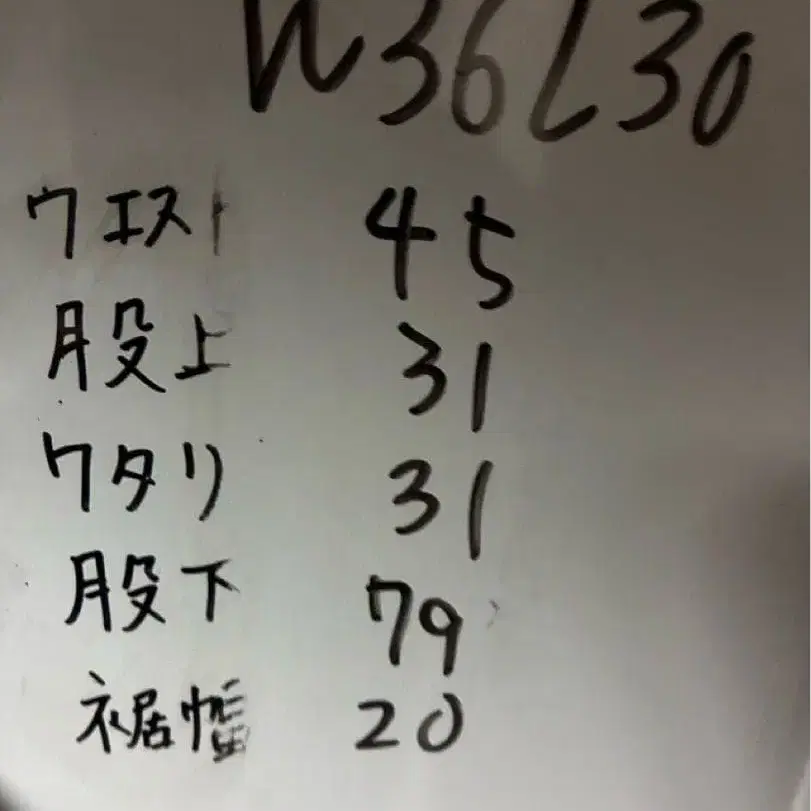 W36L30
ウエスト 45
股上 31
ワタリ 31
股下 79
裾幅 20